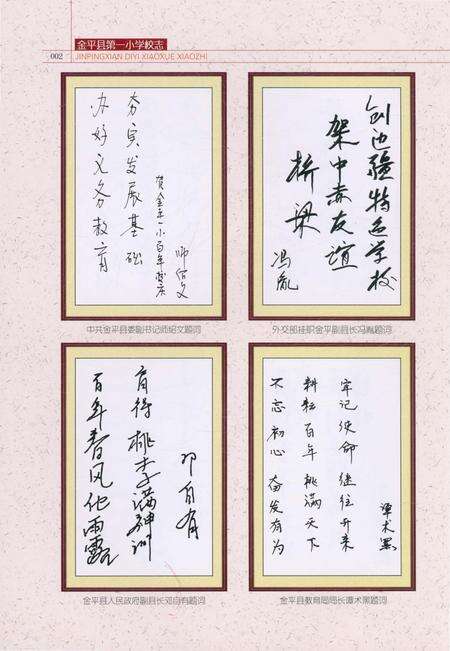 002
金平县第一小学校志
JINPINGXIAN DIYI XIAOXUE XIAOZHI
夯实发展基础
办好义务教育
贺金平一小百年校庆
师绍文
中共金平县委副书记师绍文题词
创边疆特色学校
架中赤友谊
桥梁
冯胤
外交部挂职金平副县长冯胤题词
育得桃李满神州
百年春风化雨露
邓自有
金平县人民政府副县长邓自有题词
牢记使命 继往开来
耕耘百年 桃满天下
不忘初心 奋发有为
谭术黑
金平县教育局局长谭术黑题词